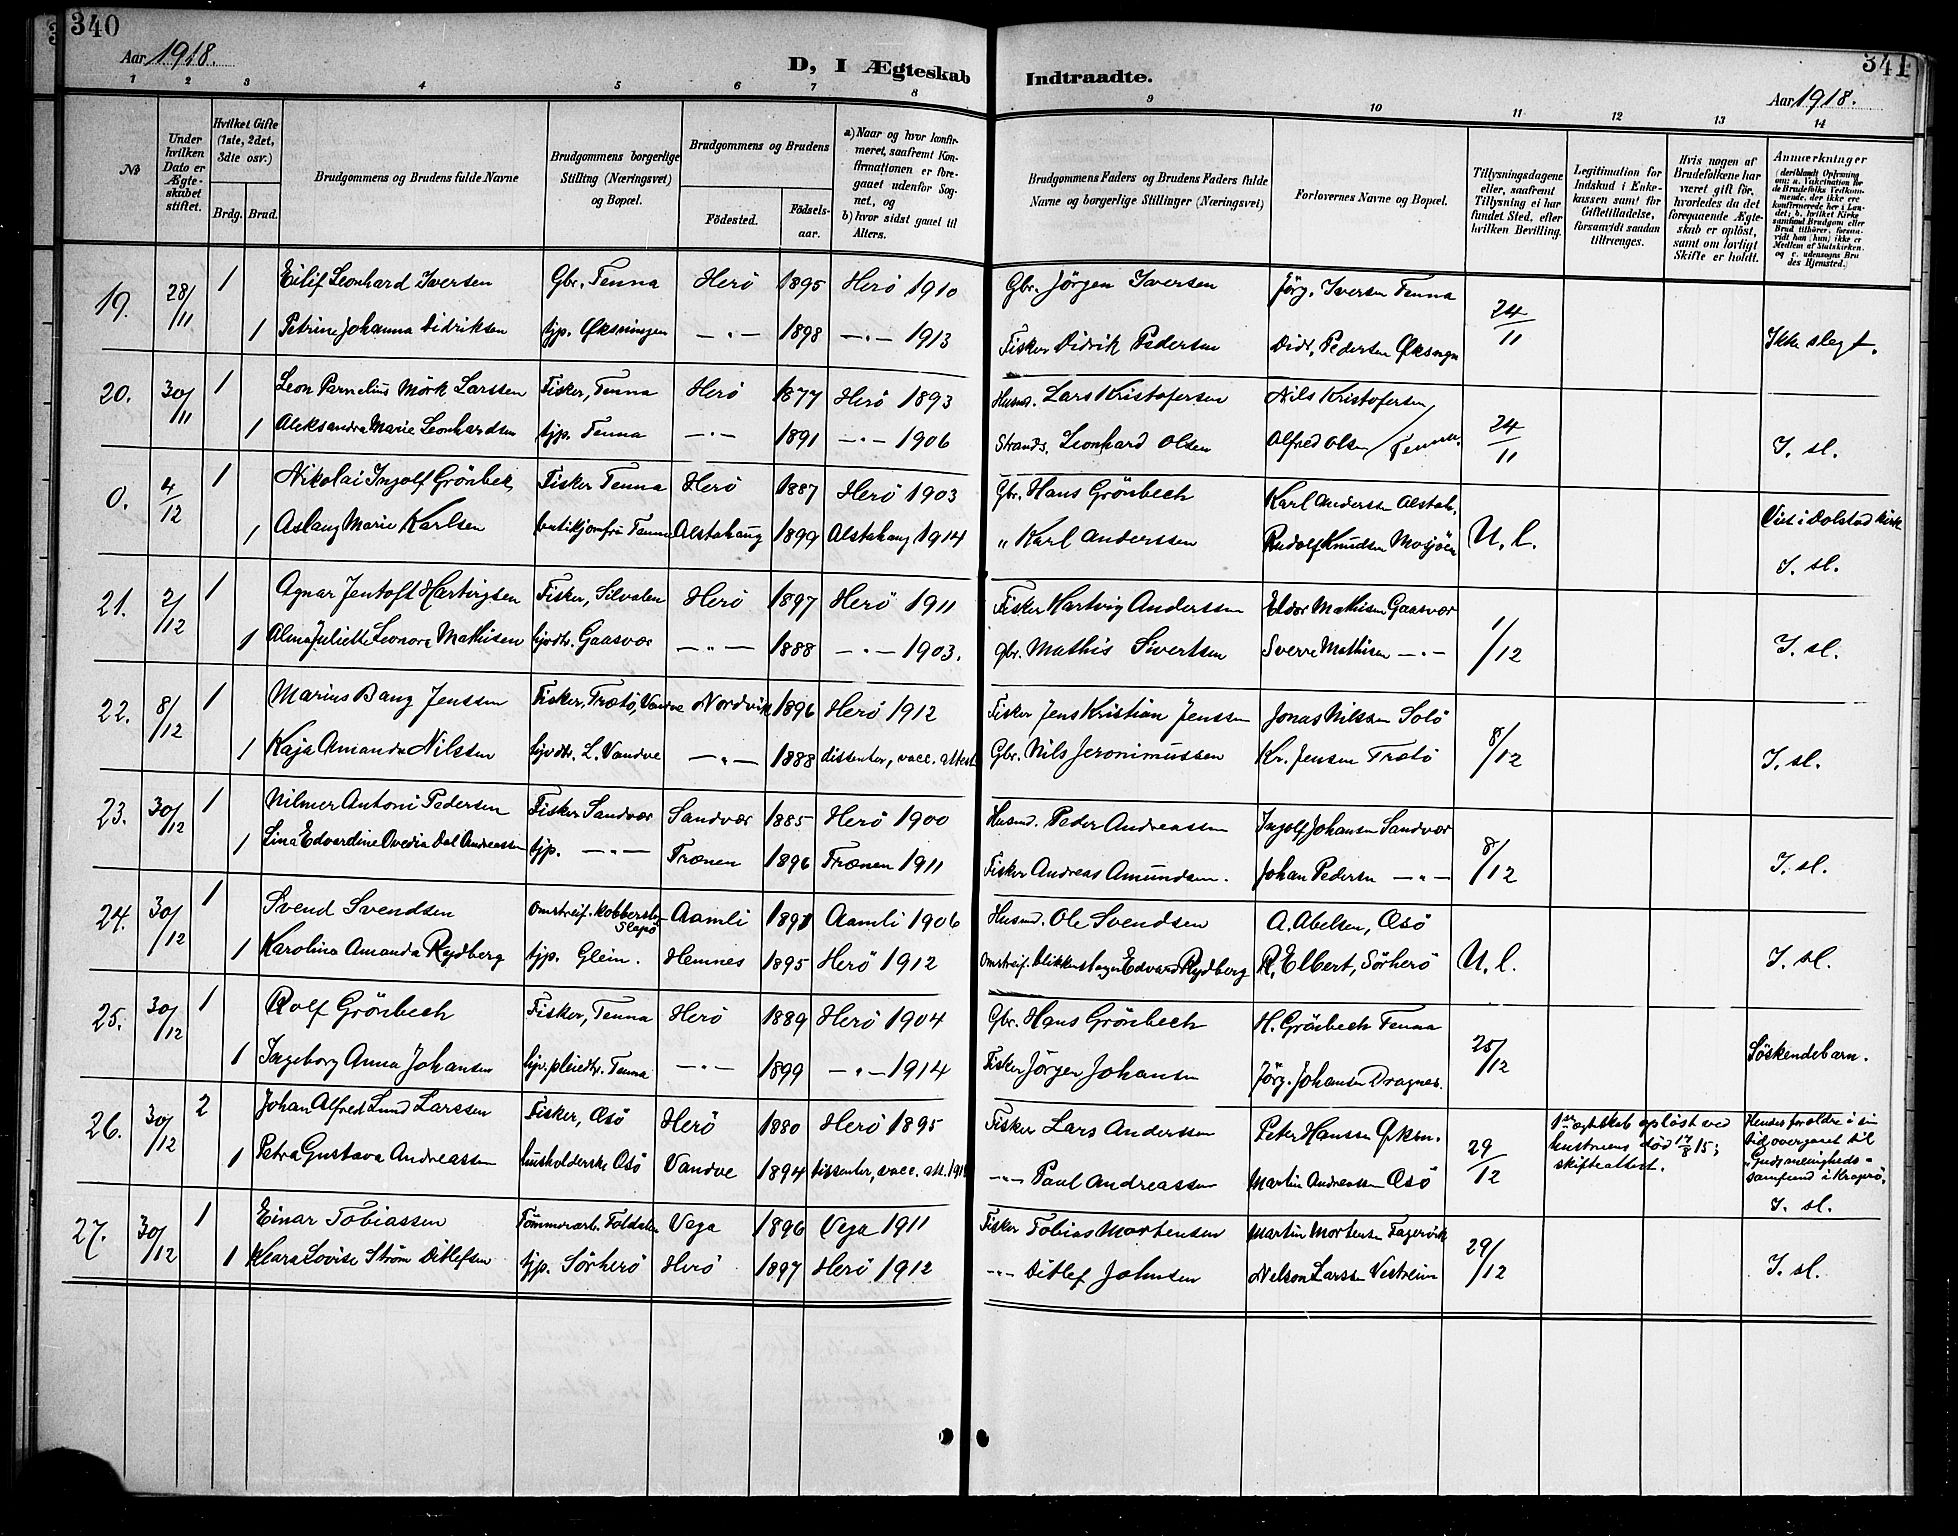 340
Aar 1918.
D, I Ægteskab
Indtraadte.
341
Aar 1918.
1 2 3 4 5 6 7 8
9 10 11 12 13 14
№
Under hvilken Dato er Ægteskabet stiftet.
Hvilket Gifte (1ste, 2det, 3dte osv.)
Brdg. Brud.
Brudgommens og Brudens fulde Navne
Brudgommens borgerlige Stilling (Næringsvei) og Bopæl.
Brudgommens og Brudens
Fødested. Fødselsaar.
a) Naar og hvor konfirmeret, saafremt Konfirmationen er foregaaet udenfor Sognet, og
b) hvor sidst gaaet til Alters.
Brudgommens Faders og Brudens Faders fulde Navne og borgerlige Stillinger (Næringsvei)
Forlovernes Navne og Bopæl.
Tillysningsdagene eller, saafremt Tillysning ei har fundet Sted, efter hvilken Bevilling.
Legitimation for Indskud i Enkekassen samt for Giftetilladelse, forsaavidt saadan tiltrænges.
Hvis nogen af Brudefolkene har været gift før, hvorledes da det foregaaende Ægteskab er opløst, samt om lovligt Skifte er holdt.
Anmærkninger (deriblandt Oplysning om: a. Vakcination for de Brudefolks Vedkommende, der ikke ere konfirmerede her i Landet; b. hvilket Kirkesamfund Brudgom eller Brud tilhører, forsaavidt han (hun) ikke er Medlem af Statskirken, og c. udensogns Brudes Hjemsted.)
19. 28/11 1 Eilif Leonhard Iversen Gbr. Tenna Herö 1895 Herö 1910 Gbr. Jörgen Iversen Jörg. Iversen Tenna 24/11
1 Petrine Johanna Didriksen tjp. Øksningen —"— 1898 —"— 1913 Fisker Didrik Pedersen Didr. Pedersen Øksngn Ikke slegt.
20. 30/11 1 Leon Parnelius Mörk Larssen Fisker, Tenna Herö 1877 Herö 1893 Husmd. Lars Kristofersen Nils Kristofersen 24/11
1 Aleksandra Marie Leonhardsen tjp. Tenna —"— 1891 —"— 1906 Strands. Leonhard Olsen Alfred Olsen / Tenna. I. sl.
0. 4/12 1 Nikolai Ingolf Grönbek Fisker Tenna Herö 1887 Herö 1903 Gbr. Hans Grönbech Karl Anderssen Alstah. U. l. Viet i Dolstad kirk
1 Aslaug Marie Karlsen butikjomfru Tenna Alstahaug 1899 Alstahaug 1914 " Karl Anderssen Rudolf Knudsen Mosjöen I. sl.
21. 2/12 1 Agnar Jentoft Hartvigsen Fisker, Silvalen Herö 1897 Herö 1911 Fisker Hartvig Anderssen Eldor Mathisen Gaasvær 1/12
1 Alma Juliette Leonora Mathisen tjvdtr. Gaasvær —"— 1888 —"— 1903. Gbr. Mathis Sivertsen Sverre Mathisen —"— I. sl.
22. 8/12 1 Marius Bang Jenssen Fisker, Trætö, Vandve Nordvik 1896 Herö 1912 Fisker Jens Kristian Jenssen Jonas Nilssen Solö 8/12
1 Kaja Amanda Nilssen tjvdtr. L. Vandve —"— 1888 dissenter, vacc. attest Gbr. Nils Jeronimussen Kr. Jensen Trætö I. sl.
23. 30/12 1 Hilmer Antoni Pedersen Fisker Sandvær Sandvær 1885 Herö 1900 Husmd. Peder Andreassen Ingolf Johansen Sandvær 8/12
1 Lina Edvardine Ovedia Dal Andreassen tjp. —"— Trænen 1896 Trænen 1911 Fisker Andreas Amundsen. Johan Pedersen —"— I. sl.
24. 30/12 1 Svend Svendsen Omstreif. kobbersl. Slapö Aamli 1891 Aamli 1906 Husmd. Ole Svendsen A. Abelsen, Æsö U. l.
1 Karolina Amanda Rydberg tjp. Glein. Hemnes 1895 Herö 1912 Omstreif. blikkenslager Edvard Rydberg R. Elbert, Sörherö I. sl.
25. 30/12 1 Rolf Grönbech Fisker, Tenna Herö 1889 Herö 1904 Gbr. Hans Grönbech H. Grönbech Tenna 25/12
1 Ingeborg Anna Johansen tjv. pleiedtr. Tenna —"— 1899 —"— 1914 Fisker Jörgen Johansen Jörg. Johansen Dragnes. Söskendebarn.
26. 30/12 2 Johan Alfred Lund Larssen Fisker, Æsö Herö 1880 Herö 1895 Fisker Lars Anderssen Peter Hanssen Øksn. 29/12 1ste ægteskab oplöst ved hustruens död 17/8 15; skifteattest. Hendes foreldre i sin tid overgaaet til "Guds menigheds-samfund i Kragerö,
1 Petra Gustava Andreassen husholderske Æsö Vandve 1894 dissenter, vacc. att. 19 —"— Paul Andreassen Martin Andreassen Æsö I. sl.
27. 30/12 1 Einar Tobiassen Tömmerarb. Foldalen Vega 1896 Vega 1911 Fisker Tobias Mortensen Martin Mortensen Fagervik 29/12
1 Klara Lovise Ström Ditlefsen tjp. Sörherö Herö 1897 Herö 1912 —"— Ditlef Johnsen Nelson Larssen Vestrein I. sl.